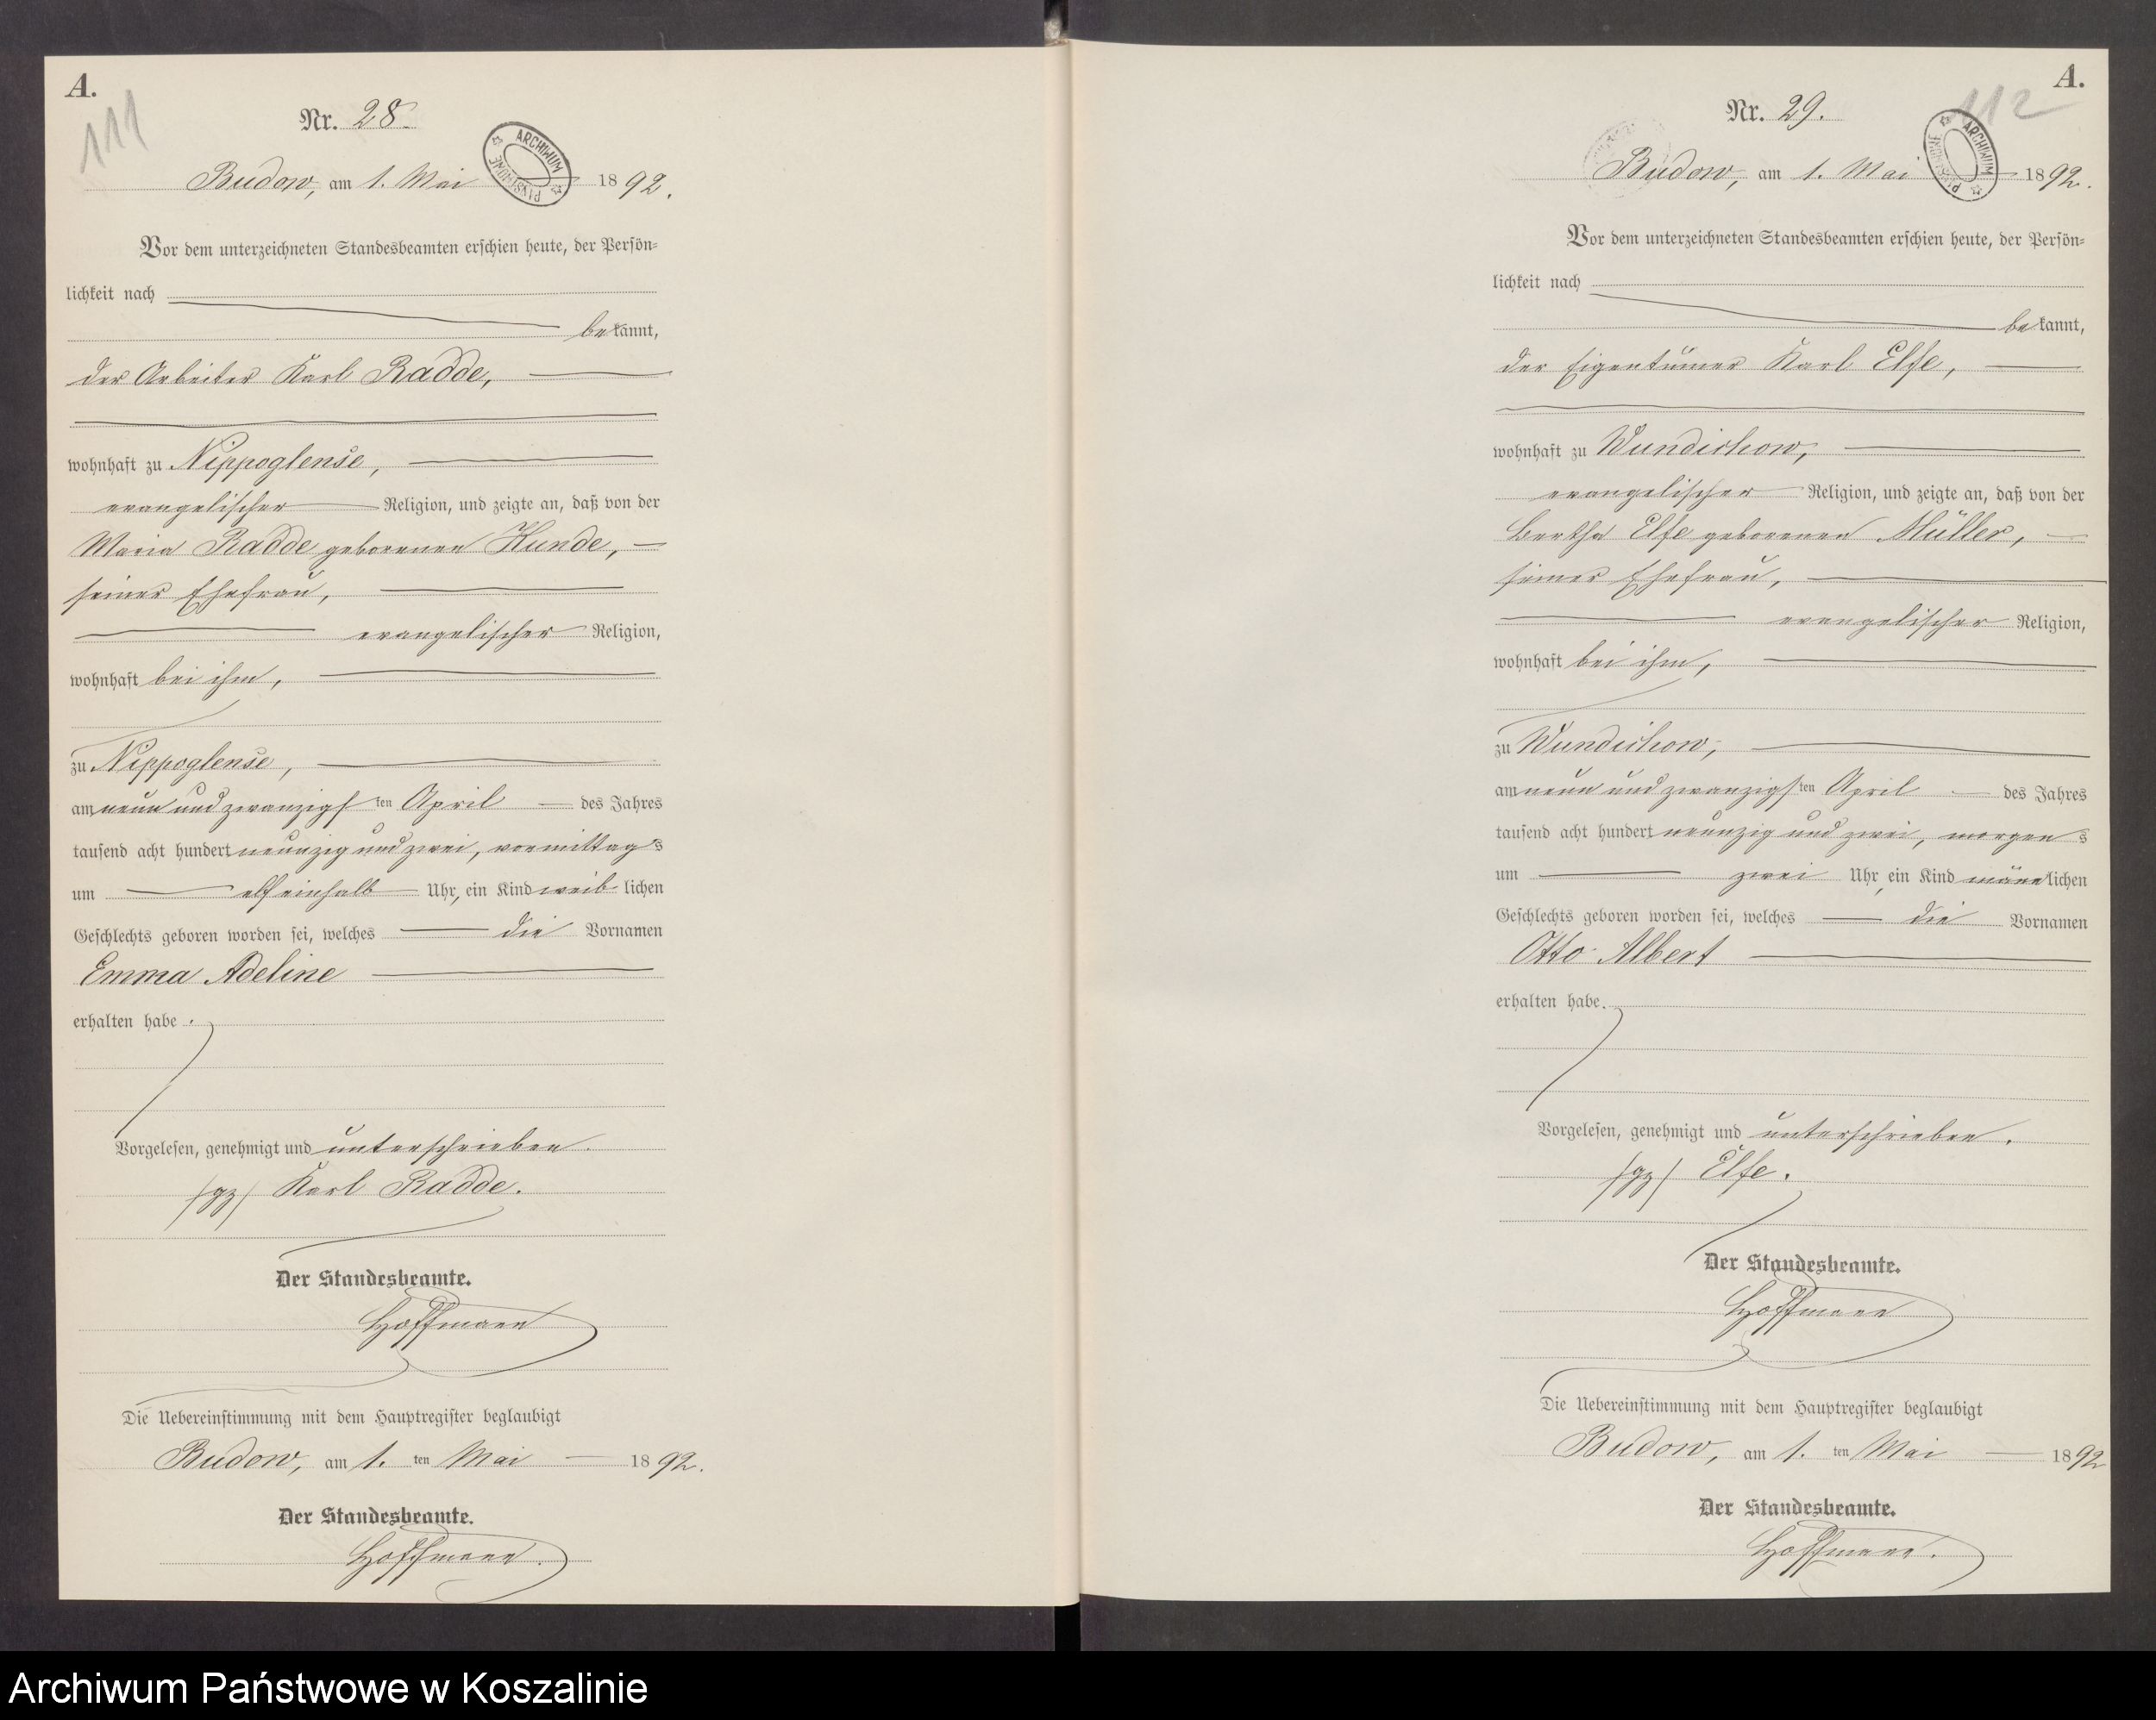 A.
111
Nr. 28.
ARCHIWUM PAŃSTWOWE
Budow, am 1. Mai 1892.
Vor dem unterzeichneten Standesbeamten erschien heute, der Persön=
lichkeit nach
bekannt,
der Arbeiter Karl Radde,
wohnhaft zu Nippoglense,
evangelischer Religion, und zeigte an, daß von der
Maria Radde geborenen Kunde,
seiner Ehefrau,
evangelischer Religion,
wohnhaft bei ihm,
zu Nippoglense,
am neun und zwanzigsten April des Jahres
tausend acht hundert neunzig und zwei, vormittags
um elfeinhalb Uhr, ein Kind weiblichen
Geschlechts geboren worden sei, welches die Vornamen
Emma Adeline
erhalten habe.
Vorgelesen, genehmigt und unterschrieben.
/gz/ Karl Radde.
Der Standesbeamte.
Hoffmann
Die Uebereinstimmung mit dem Hauptregister beglaubigt
Budow, am 1. ten Mai 1892.
Der Standesbeamte.
Hoffmann.
A.
112
Nr. 29.
ARCHIWUM PAŃSTWOWE
Budow, am 1. Mai 1892.
Vor dem unterzeichneten Standesbeamten erschien heute, der Persön=
lichkeit nach
bekannt,
der Eigentümer Karl Elfe,
wohnhaft zu Wundichow,
evangelischer Religion, und zeigte an, daß von der
Bertha Elfe geborenen Müller,
seiner Ehefrau,
evangelischer Religion,
wohnhaft bei ihm,
zu Wundichow,
am neun und zwanzigsten April des Jahres
tausend acht hundert neunzig und zwei, morgens
um zwei Uhr, ein Kind männlichen
Geschlechts geboren worden sei, welches die Vornamen
Otto Albert
erhalten habe.
Vorgelesen, genehmigt und unterschrieben.
/gz/ Elfe.
Der Standesbeamte.
Hoffmann
Die Uebereinstimmung mit dem Hauptregister beglaubigt
Budow, am 1. ten Mai 1892
Der Standesbeamte.
Hoffmann.
Archiwum Państwowe w Koszalinie